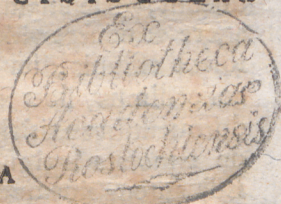 Ex
Bibliotheca
Academiae
Rostochiensis
A